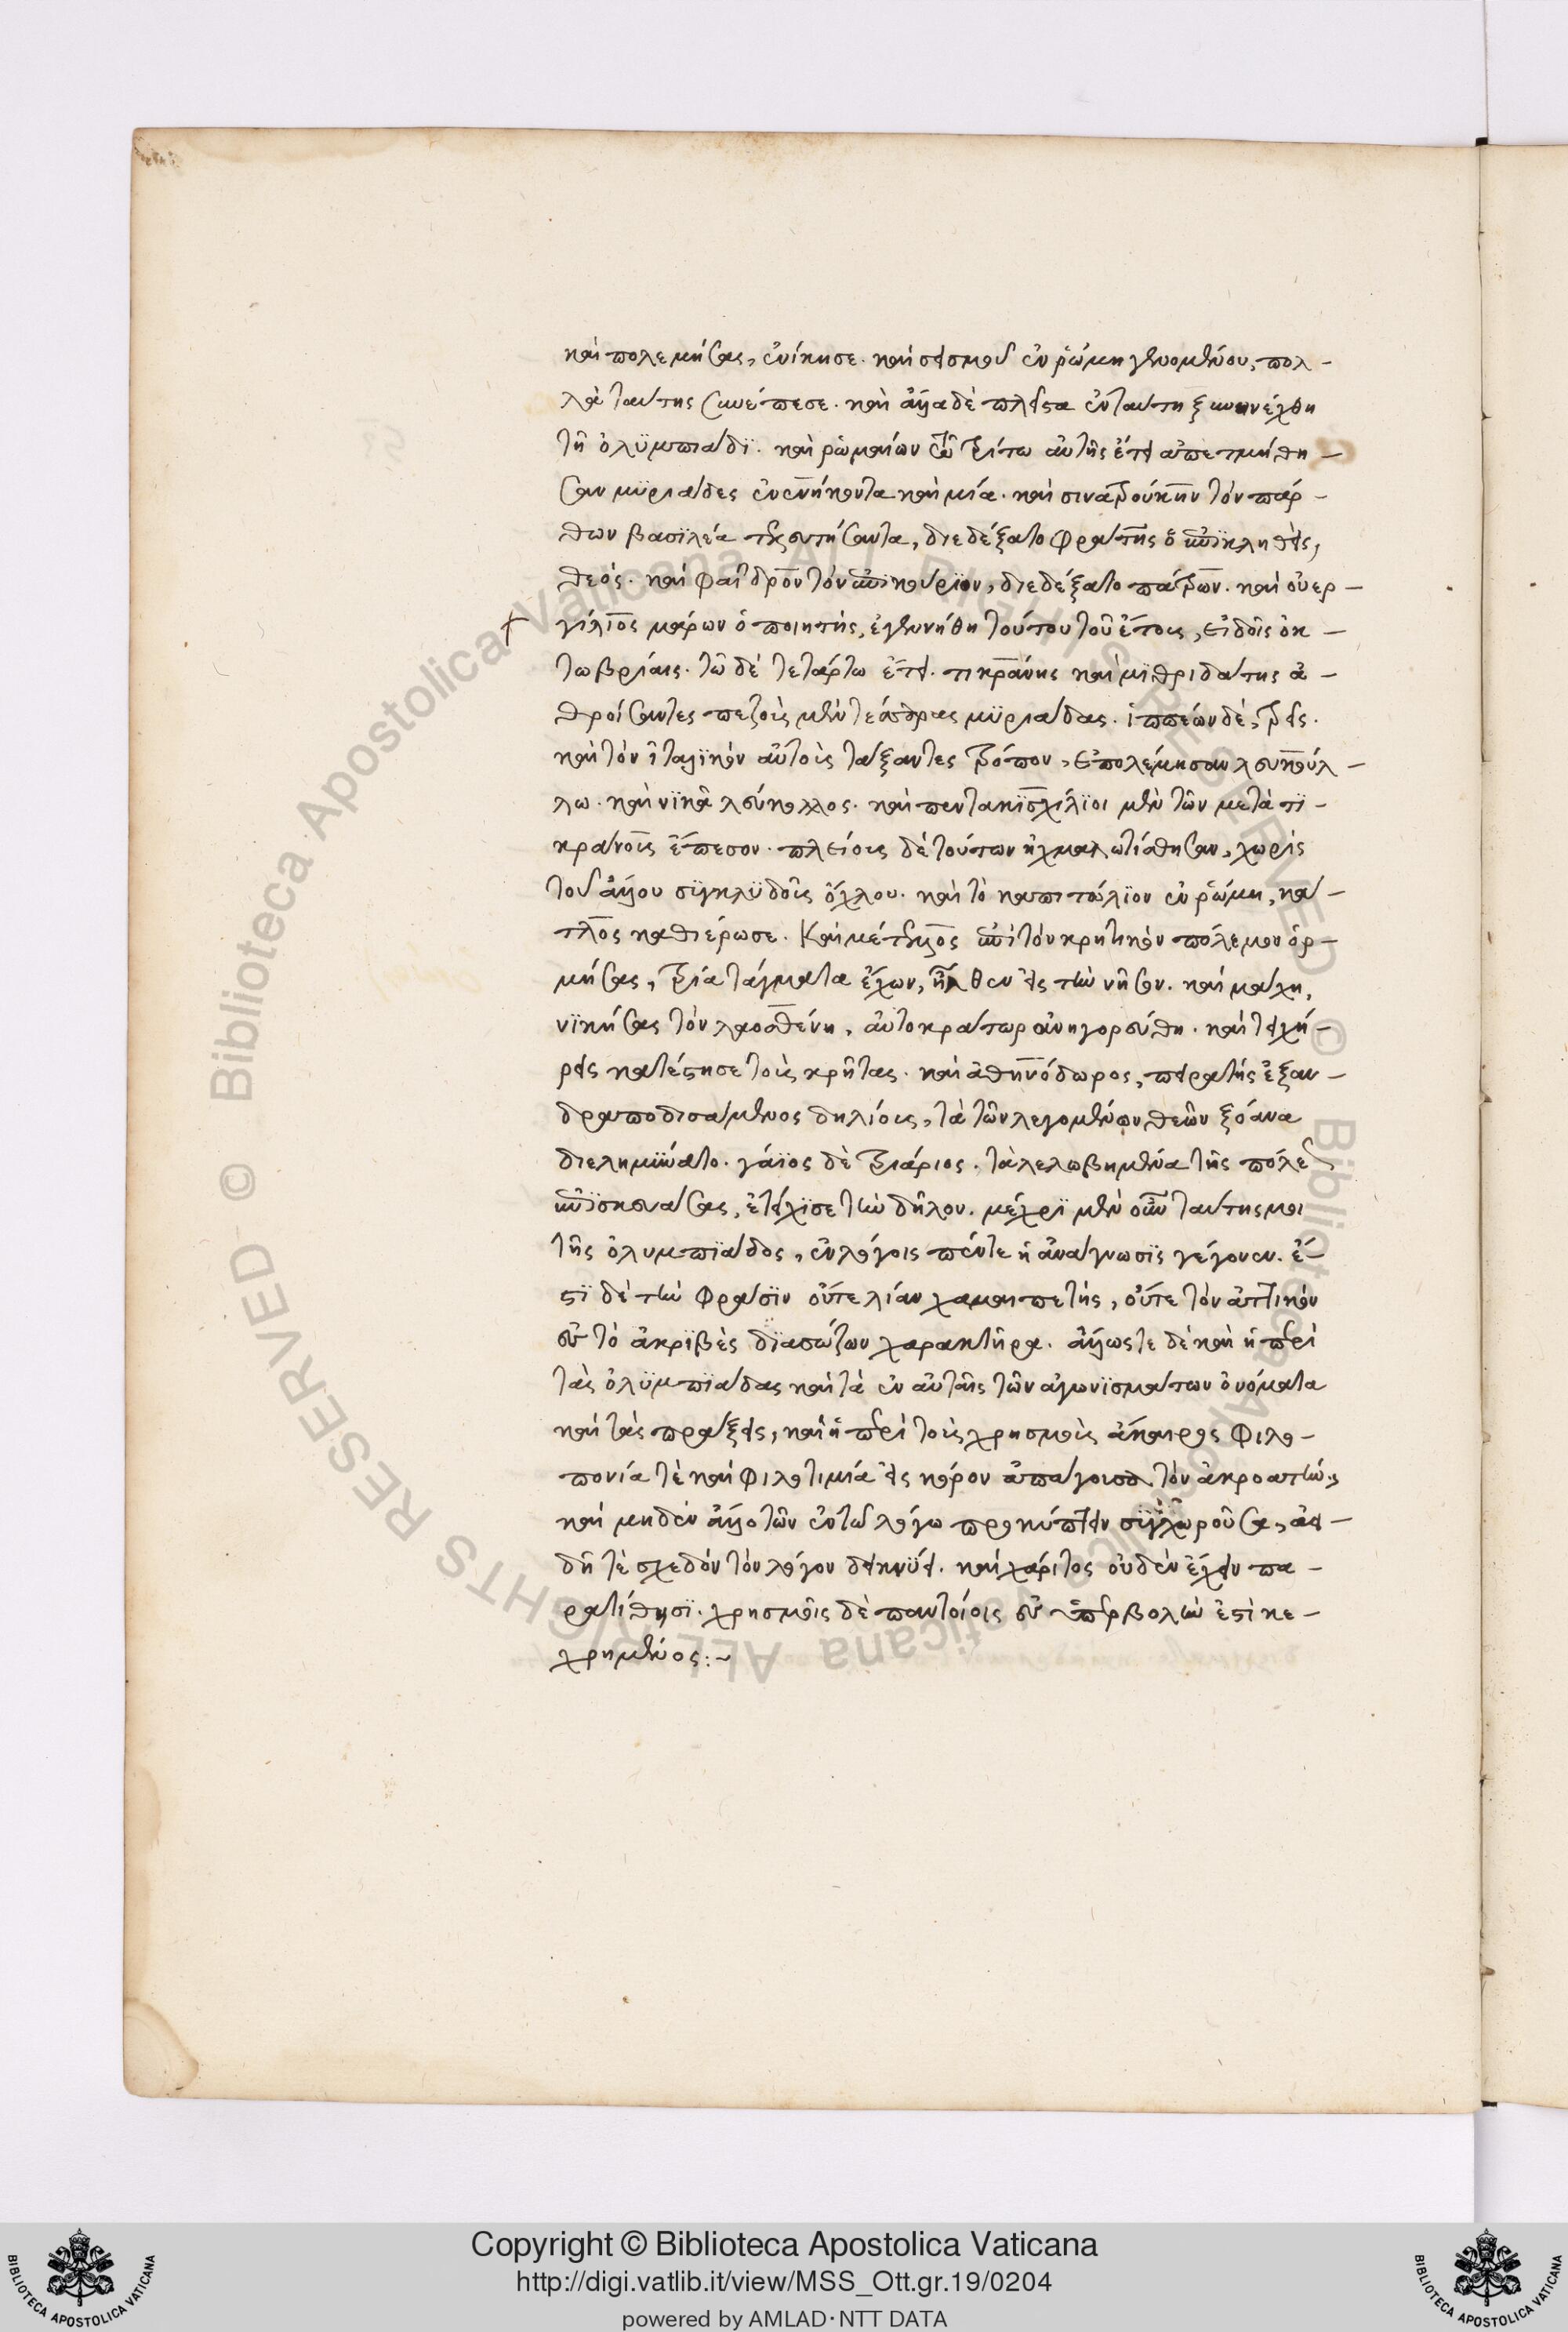 καὶ πολεμήσας, ἐνίκησε. καὶ σεισμοῦ ἐν ῥώμη γενομένου, πολ-
λὰ ταύτης συνέπεσε. καὶ ἄλλα δὲ πλεῖστα ἐν ταύτη ξυνηνέχθη
τῆ ὀλϋμπιάδϊ. καὶ ῥωμαίων ἐν τῶ τρίτω αὐτῆς ἔτει ἀπετμήθη-
σαν μϋριάδες ἐνενήκοντα καὶ μία. καὶ σινατρούκην τὸν πάρ-
θων βασϊλέα τελευτήσαντα, διεδέξατο φραάτης ὁ ἐπϊκληθεὶς,
θεός. καὶ φαῖδρον τὸν ἐπϊκούρϊον, διεδέξατο πάτρων. καὶ οὐερ-
γίλιος μάρων ὁ ποιητής, ἐγεννήθη τούτου τοῦ ἔτους, εἰδοῖς ὀκ-
τωβρίαις. τῶ δὲ τετάρτω ἔτει. τικράνης καὶ μϊθριδάτης ἀ-
θροίσαντες πεζοὺς μὲν τέσσαρας μϋριάδας. ἱππέων δὲ, τρεῖς.
καὶ τὸν ἰταλϊκὸν αὐτοὺς τάξαντες τρόπον, ἐπολέμησαν λευκούλ-
λω. καὶ νϊκᾶ λεύκολλος. καὶ πεντακϊσχίλϊοι μὲν τῶν μετὰ τϊ-
κράνους ἔπεσον. πλείους δὲ τούτων ἠχμαλωτίσθησαν, χωρὶς
τοῦ ἄλλου σϋγκλϋδος ὄχλου. καὶ τὸ καπιτώλϊον ἐν ῥώμη, κά-
τλος καθιέρωσε. Καὶ μέτελλος ἐπὶ τὸν κρητικὸν πόλεμον ὁρ-
μήσας, τρία τάγματα ἔχων, ἦλθεν εἰς τὴν νῆσον. καὶ μάχη,
νϊκήσας τὸν λαοσθένη, αὐτοκράτωρ ἀνηγορεύθη. καὶ τειχή-
ρεις κατέστησε τοὺς κρῆτας. καὶ ἀθηνόδωρος, πειρατὴς ἐξαν-
δραποδισάμενος δηλίους, τὰ τῶν λεγομένων θεῶν ξόανα
διελημϊνατο. γάϊος δὲ τριάριος. τὰ λελωβημένα τῆς πόλεως
ἐπϊσκευάσας, ἐτείχϊσε τὴν δῆλον. μέχρϊ μὲν οὖν ταύτης μοι
τῆς ὀλυμπϊάδος, ἐν λόγοις πέντε ἡ ἀνάγνωσϊς γέγονεν. ἔ-
στϊ δὲ τὴν φράσϊν οὔτε λίαν χαμαιπετής, οὔτε τὸν ἀττικὸν
ἐς τὸ ἀκρϊβὲς δϊασώζων χαρακτῆρα. ἄλλως τε δὲ καὶ ἡ περὶ
τὰς ὀλϋμπϊάδας καὶ τὰ ἐν αὐταῖς τῶν ἀγωνϊσμάτων ὀνόματα
καὶ τὰς πράξεις, καὶ ἡ περὶ τοὺς χρησμοὺς ἄκαιρος φιλο-
πονία τὲ καὶ φιλοτιμία εἰς κόρον ἀπάγουσα τὸν ἀκροατὴν,
καὶ μηδὲν ἄλλο τῶν ἐν τῶ λόγω προκύπτειν σϋγχωροῦσα, ἀει-
δῆ τὲ σχεδὸν τὸν λόγον δεικνύϊει. καὶ χάριτος οὐδὲν ἔχειν πα-
ρατίθησϊ. χρησμοῖς δὲ παντοίοις ἐς ὑπερβολὴν ἐστὶ κε-
χρημένος :~
Copyright © Biblioteca Apostolica Vaticana
http://digi.vatlib.it/view/MSS_Ott.gr.19/0204
powered by AMLAD·NTT DATA